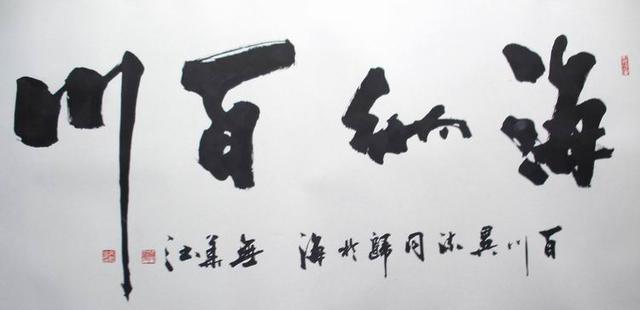 海纳百川
百川異流同歸於海 無華江